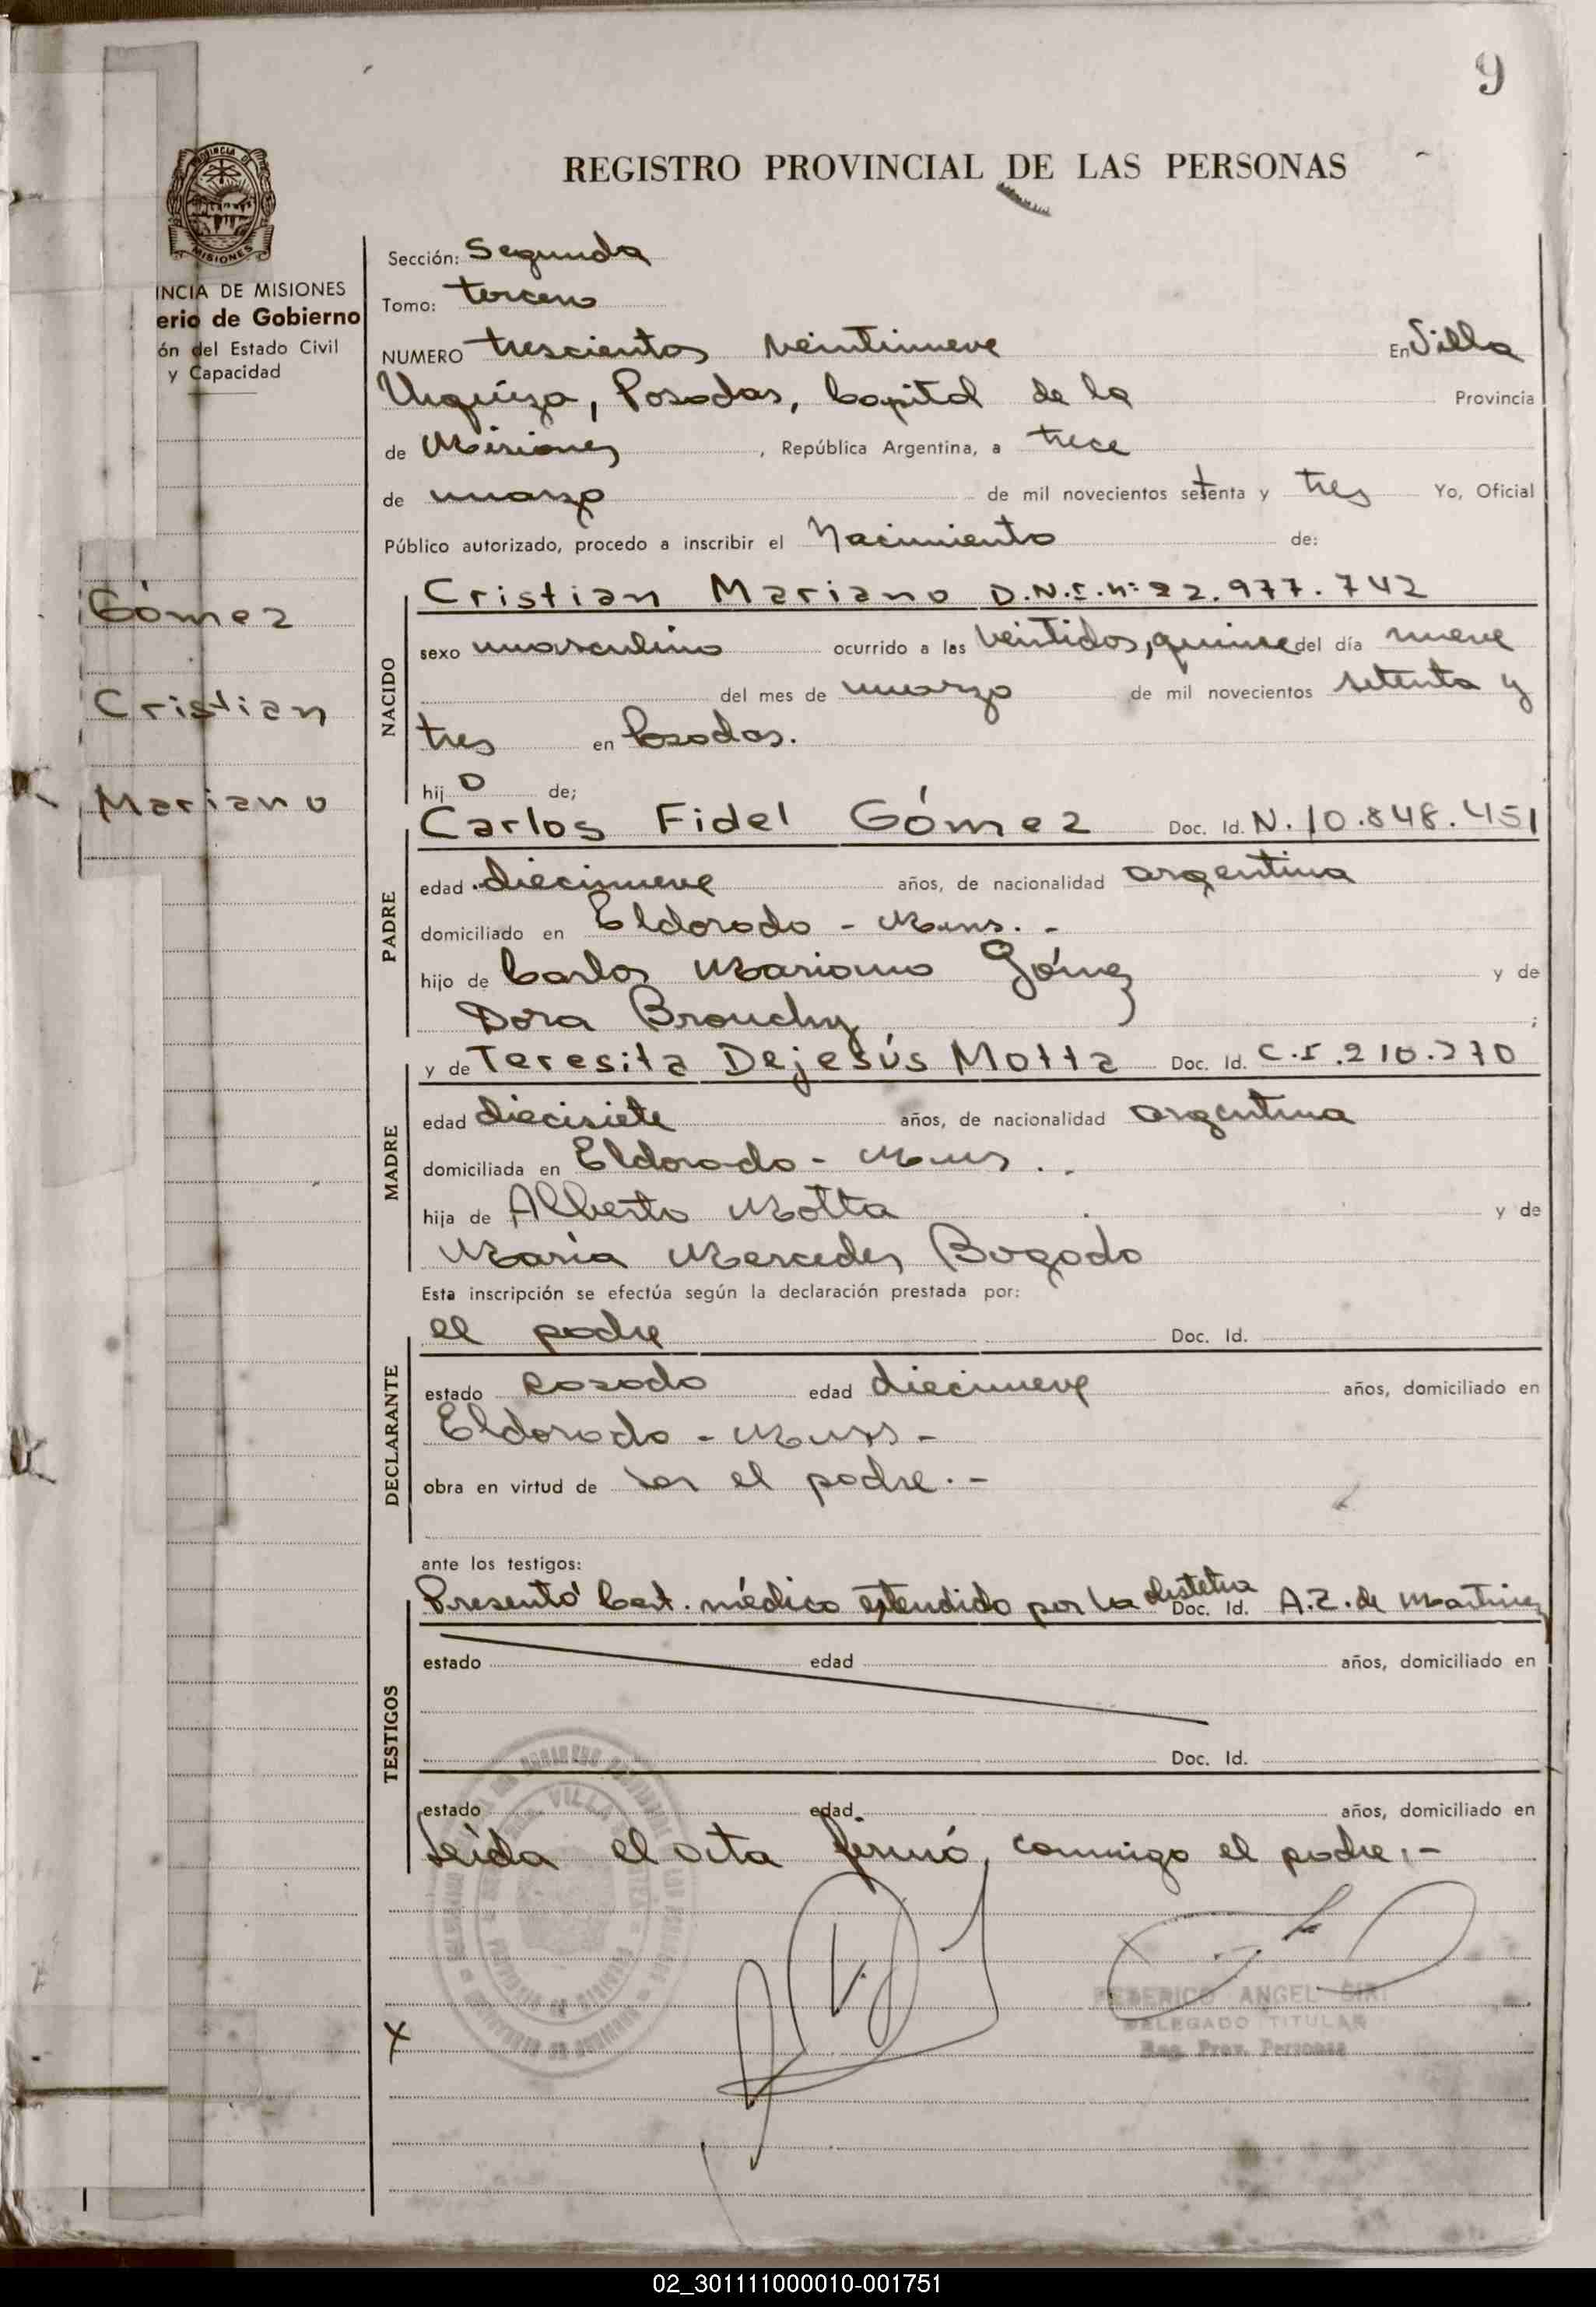 9
REGISTRO PROVINCIAL DE LAS PERSONAS
PROVINCIA DE
MISIONES
INCIA DE MISIONES
erio de Gobierno
ón del Estado Civil
y Capacidad
Gómez
Cristian
Mariano
Sección: Segunda
Tomo: tercero
NUMERO trescientos veintinueve En Villa
Urquiza, Posadas, Capital de la Provincia
de Misiones, República Argentina, a trece
de marzo de mil novecientos setenta y tres Yo, Oficial
Público autorizado, procedo a inscribir el Nacimiento de:
NACIDO
Cristian Mariano D.N.I. nº 22.977.742
sexo masculino ocurrido a las veintidos, quince del día nueve
del mes de marzo de mil novecientos setenta y
tres en Posadas.
hijo de;
PADRE
Carlos Fidel Gómez Doc. Id. N. 10.848.451
edad diecinueve años, de nacionalidad argentina
domiciliado en Eldorado - Mnes. -
hijo de Carlos Mariano Gómez y de
Dora Brouchy ;
MADRE
y de Teresita Dejesús Motta Doc. Id. C.I. 210.270
edad diecisiete años, de nacionalidad argentina
domiciliada en Eldorado - Mnes. -
hija de Alberto Motta y de
María Mercedes Bogado
Esta inscripción se efectúa según la declaración prestada por:
DECLARANTE
el padre Doc. Id.
estado casado edad diecinueve años, domiciliado en
Eldorado - Mnes -
obra en virtud de ser el padre. -
ante los testigos:
TESTIGOS
Presentó Cert. médico extendido por la obstetra Doc. Id. A.Z. de Martinez
estado edad años, domiciliado en
Doc. Id.
estado edad años, domiciliado en
Leída el acta firmó, conmigo el padre. -
FEDERICO ANGEL SIRI
DELEGADO TITULAR
Reg. Prov. Personas
X
02_301111000010-001751